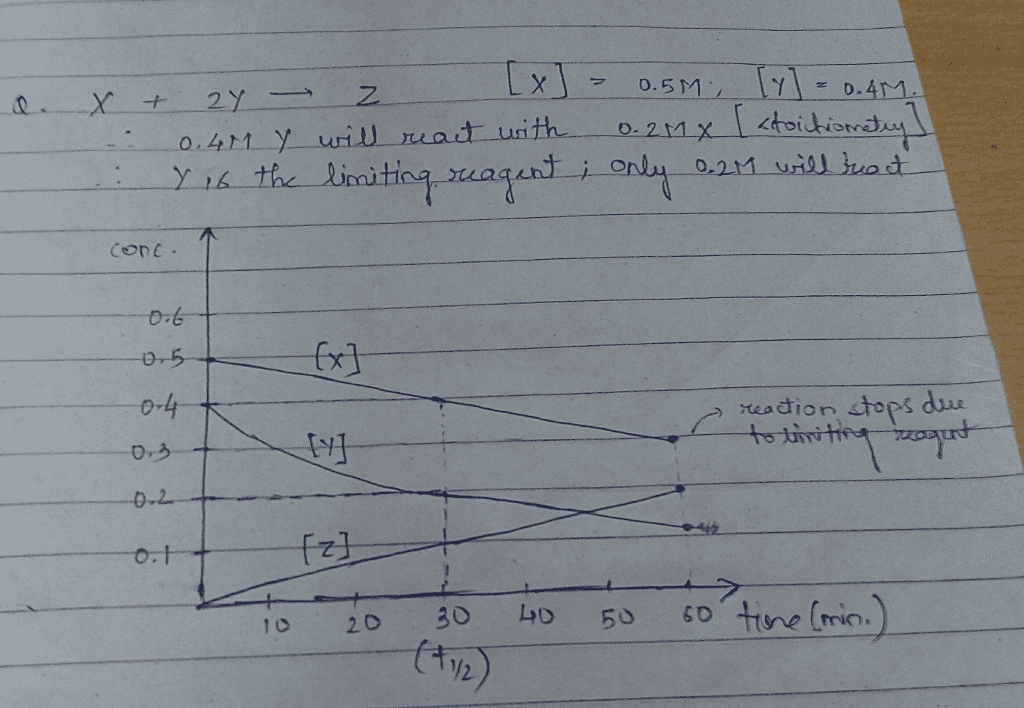 Q. X + 2Y → Z [X] = 0.5M; [Y] = 0.4M.
∴ 0.4M Y will react with 0.2M X [stoichiometry]
∴ Y is the limiting reagent; only 0.2M will react
conc.
0.6
0.5 [X]
0.4 reaction stops due
0.3 [Y] to limiting reagent
0.2
0.1 [Z]
10 20 30 40 50 60 time (min.)
(t1/2)